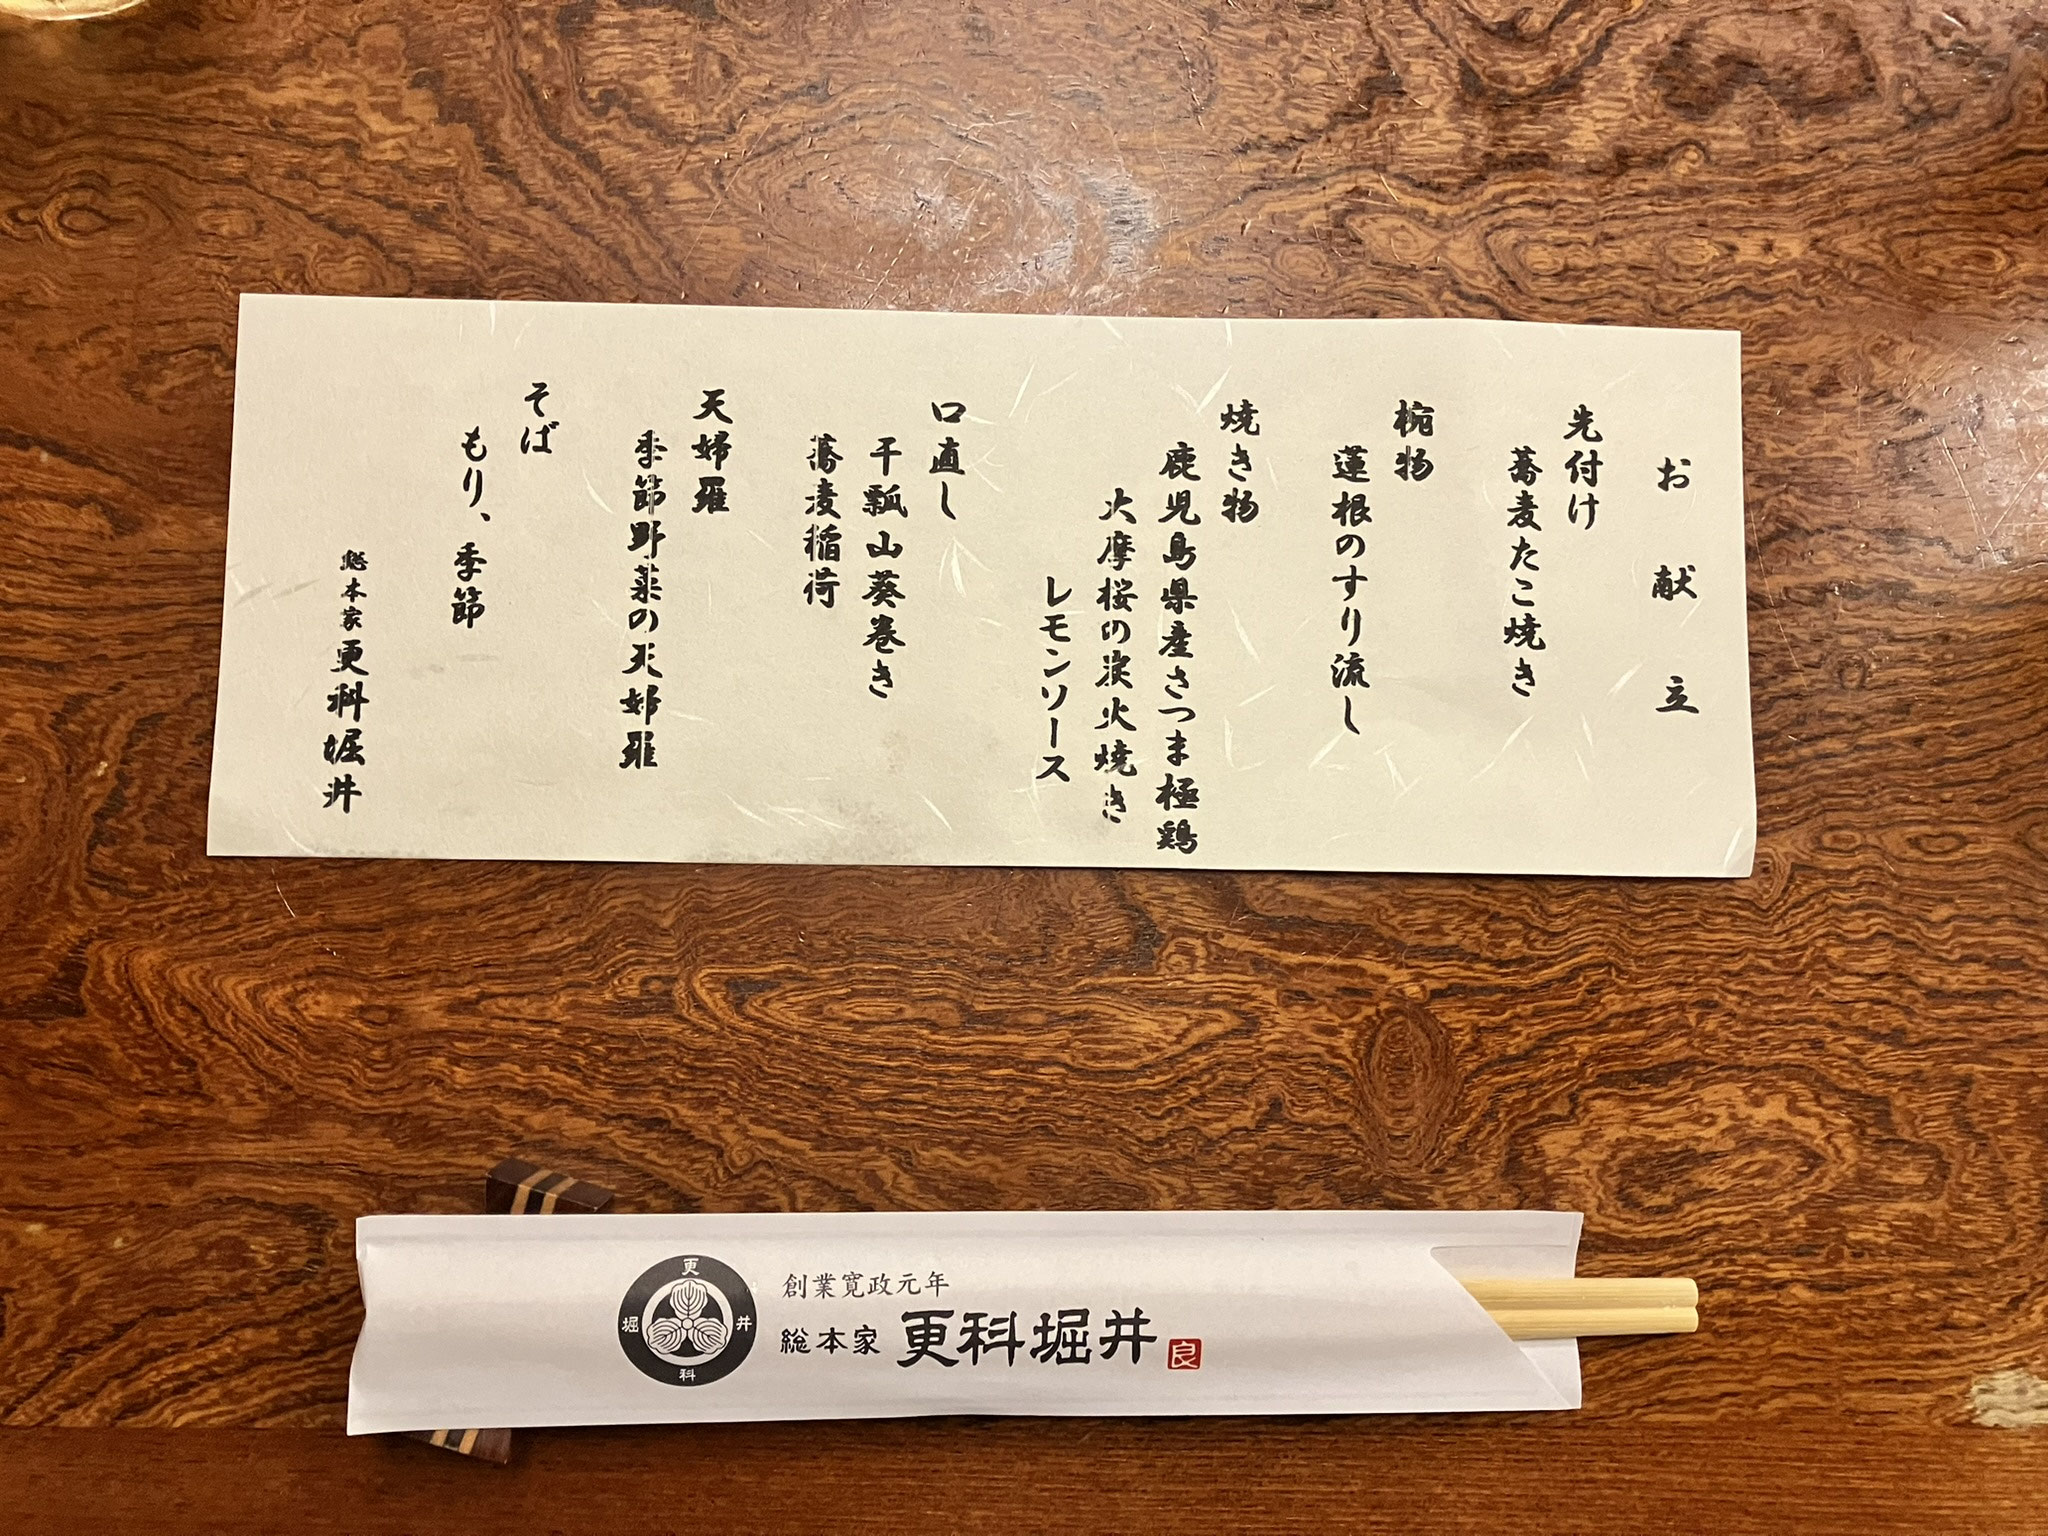 お献立
先付け
蕎麦たこ焼き
椀物
蓮根のすり流し
焼き物
鹿児島県産さつま極鶏
大摩桜の炭火焼き
レモンソース
口直し
干瓢山葵巻き
蕎麦稲荷
天婦羅
季節野菜の天婦羅
そば
もり、季節
総本家更科堀井
更
堀
井
科
創業寛政元年
総本家 更科堀井
良